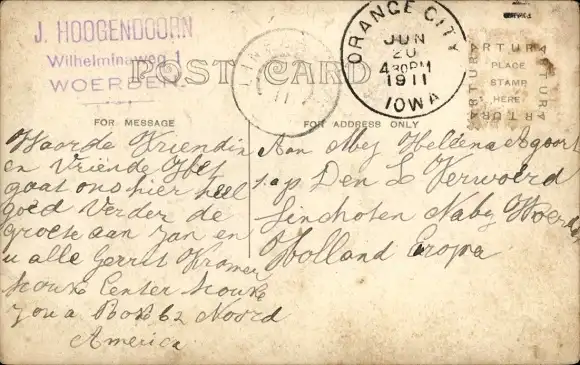 J. HOOGENDOORN
Wilhelminaweg 1
WOERDEN
POST CARD
ORANGE CITY
JUN
20
430PM
1911
IOWA
ARTURA
ARTURA
ARTURA
ARTURA
PLACE
STAMP
HERE
FOR MESSAGE
FOR ADDRESS ONLY
Waarde Vriendin
en Vriende Het
gaat ons hier heel
goed Verder de
groete aan Jan en
u alle Gerrit Kramer
Souxe Center Souxe
Box 62 Noord
America
Aan Mej Hellena
Den L Verwoerd
Linchoten Naby Woerden
Holland Eropa